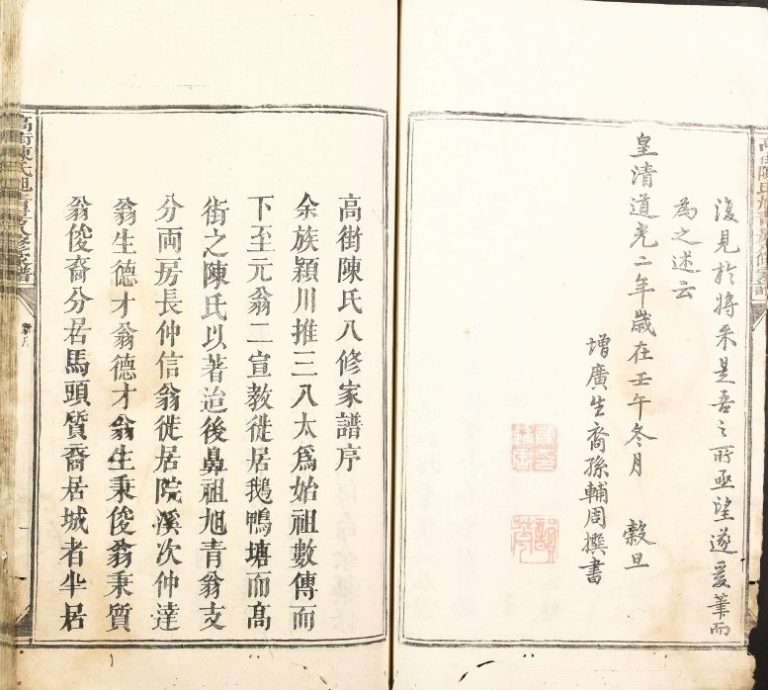 復見於將來是吾之所亟望遂爰筆而
為之述云
皇清道光二年歲在壬午冬月　穀旦
增廣生裔孫輔周撰書
高街陳氏八修家譜序
余族潁川推三八太爲始祖數傳而
下至元翁二宣教徙居鵝鴨塘而高
街之陳氏以著迨後鼻祖旭青翁支
分兩房長仲信翁徙居院溪次仲達
翁生德才翁德才翁生秉俊翁秉質
翁俊裔分居馬頭質裔居城者半居